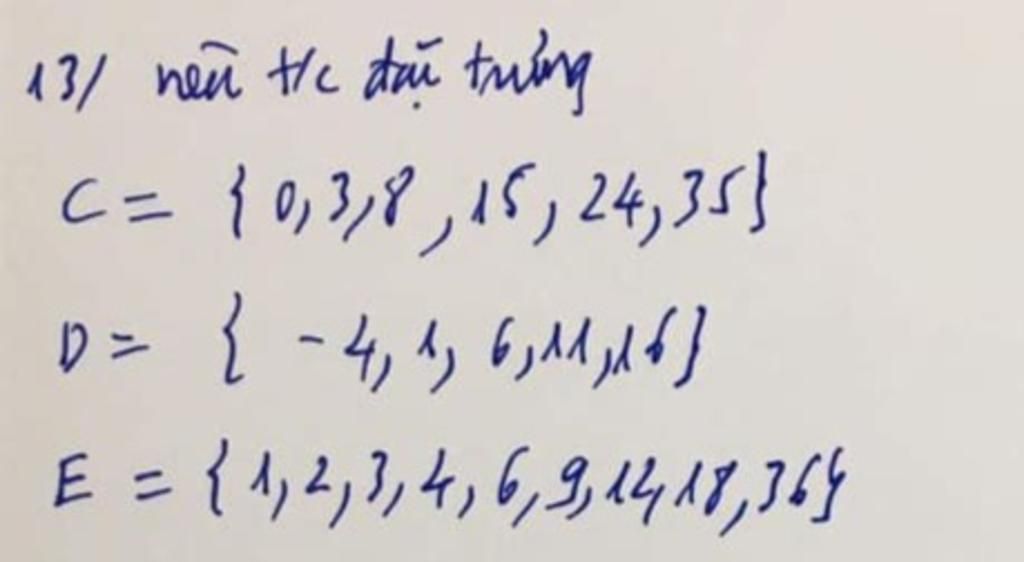 13/ nêu t/c đặc trưng
C = { 0, 3, 8, 15, 24, 35}
D = { -4, 1, 6, 11, 16}
E = {1, 2, 3, 4, 6, 9, 12, 18, 36}